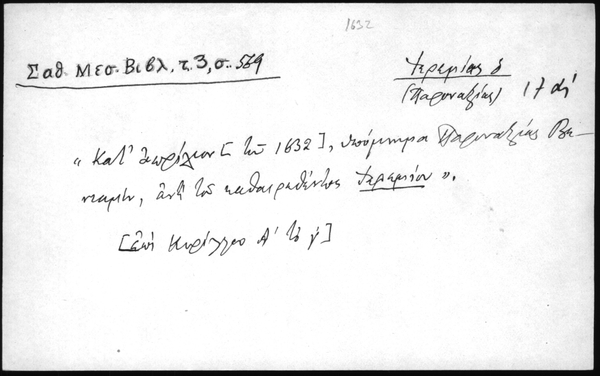 1632
Σαθ. Μεσ. Βιβλ. τ. 3, σ. 569
Ἱερεμίας ὁ
(Παροναξίας) 17 αἰ
"Κατ' Ἀπρίλιον [τοῦ 1632], ὑπόμνημα Παροναξίας Βε-
νιαμίν, ἀντὶ τοῦ καθαιρεθέντος Ἱερεμίου".
[ἐπὶ Κυρίλλου Α' τὸ γ']